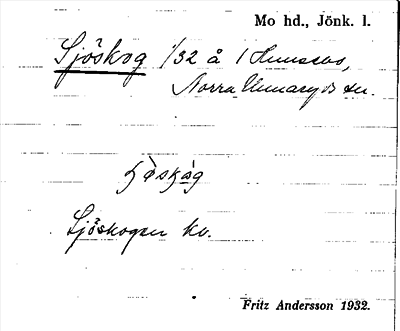 Mo hd., Jönk. l.
Sjöskog 1/32 å 1 Hunseros,
Norra Unnaryds sn.
Sjöskogen kv.
Fritz Andersson 1932.